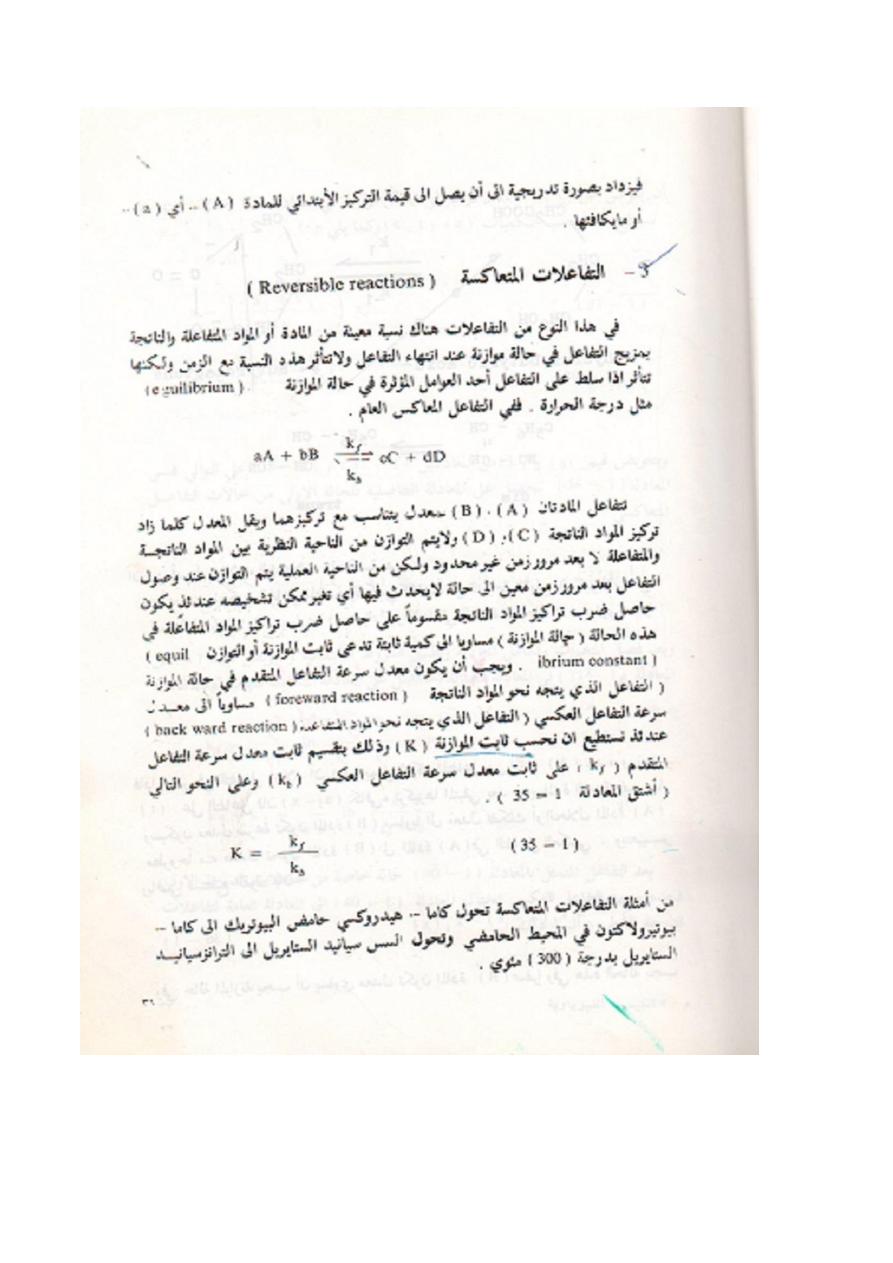 فيزداد بصورة تدريجية الى أن يصل الى قيمة التركيز الأبتدائي للمادة ( A ) - أي ( a ) -
أو مايكافئها .
3 - التفاعلات المتعاكسة ( Reversible reactions )
في هذا النوع من التفاعلات هناك نسبة معينة من المادة أو المواد المتفاعلة والناتجة
بمزيج التفاعل في حالة موازنة عند انتهاء التفاعل ولاتتأثر هذه النسبة مع الزمن ولكنها
تتأثر اذا سلط على التفاعل أحد العوامل المؤثرة في حالة الموازنة ( eguilibrium )
مثل درجة الحرارة . ففي التفاعل المعاكس العام .
aA + bB ⇌ cC + dD
kf
kb
تتفاعل المادتان ( A ) ، ( B ) بمعدل يتناسب مع تركيزهما ويقل المعدل كلما زاد
تركيز المواد الناتجة ( C ) ، ( D ) ولايتم التوازن من الناحية النظرية بين المواد الناتجة
والمتفاعلة لا بعد مرور زمن غير محدود ولكن من الناحية العملية يتم التوازن عند وصول
التفاعل بعد مرور زمن معين الى حالة لايحدث فيها أي تغير ممكن تشخيصه عندئذ يكون
حاصل ضرب تراكيز المواد الناتجة مقسوماً على حاصل ضرب تراكيز المواد المتفاعلة في
هذه الحالة ( حالة الموازنة ) مساويا الى كمية ثابتة تدعى ثابت الموازنة أو التوازن ( equil
ibrium constant ) . ويجب أن يكون معدل سرعة التفاعل المتقدم في حالة الموازنة
( التفاعل الذي يتجه نحو المواد الناتجة ( foreward reaction ) مساوياً الى معدل
سرعة التفاعل العكسي ( التفاعل الذي يتجه نحو المواد المتفاعلة ( back ward reaction )
عندئذ نستطيع ان نحسب ثابت الموازنة ( K ) وذلك بتقسيم ثابت معدل سرعة التفاعل
المتقدم ( kf ) على ثابت معدل سرعة التفاعل العكسي ( kb ) وعلى النحو التالي
( أشتق المعادلة 1 – 35 ) .
K = kf / kb ( 35 – 1 )
من أمثلة التفاعلات المتعاكسة تحول كاما - هيدروكسي حامض البيوتريك الى كاما -
بيوتيرولاكتون في المحيط الحامضي وتحول السس سيانيد الستايريل الى الترانزسيانيد
الستايريل بدرجة ( 300 ) مئوي .